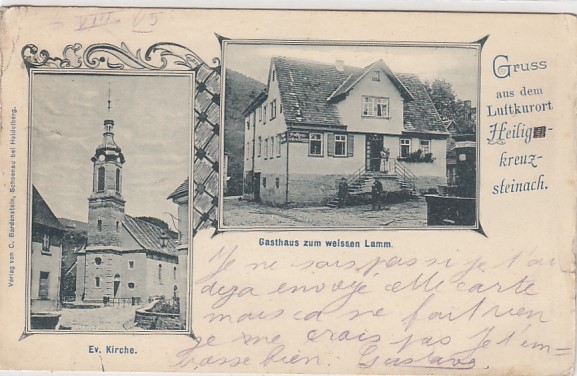 VIII 05
Gruss
aus dem
Luftkurort
Heilig-
kreuz-
steinach.
Verlag von C. Bardenstein, Schoenau bei Heidelberg.
Gasthaus zum weissen Lamm.
Ev. Kirche.
Je ne sais pas si je t'ai
deja envoye cette carte
mais ca ne fait rien
je me crois pas je t'em-
brasse bien. Gustave.